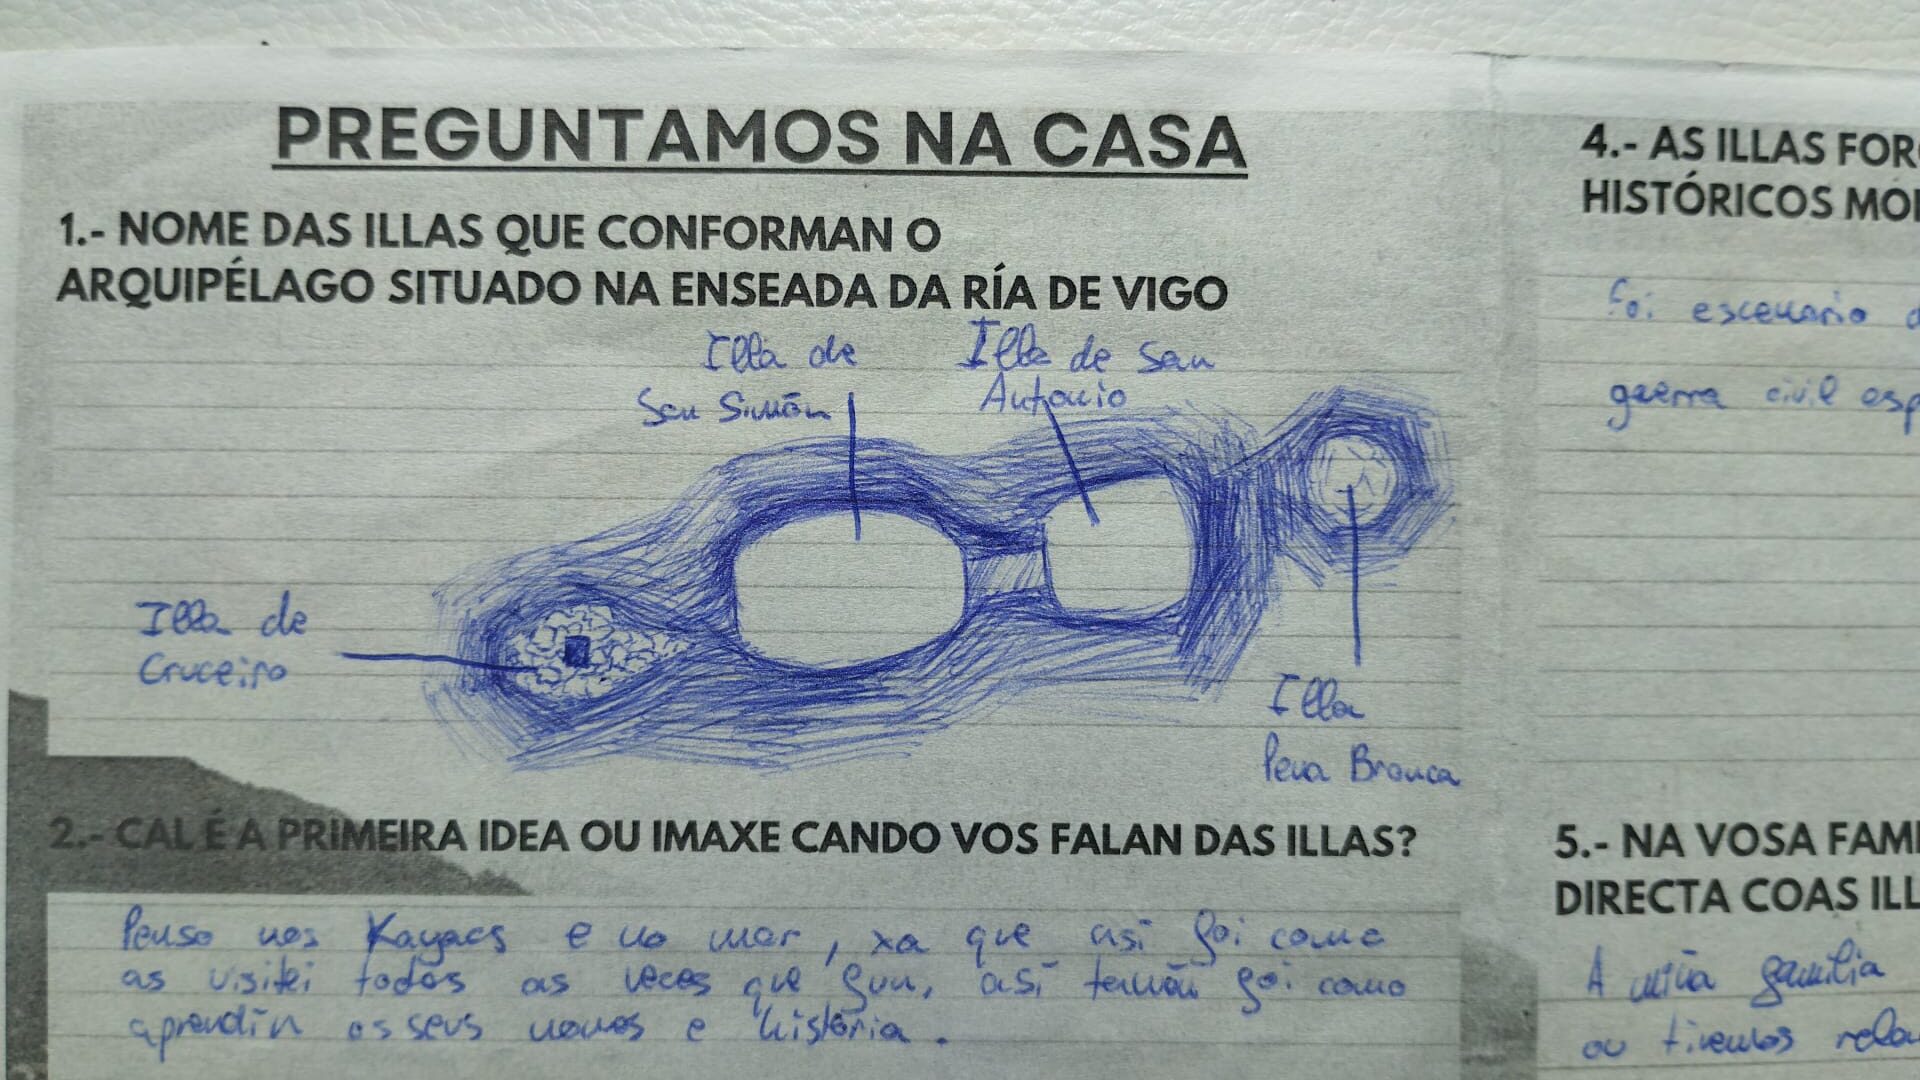 PREGUNTAMOS NA CASA
1.- NOME DAS ILLAS QUE CONFORMAN O
ARQUIPÉLAGO SITUADO NA ENSEADA DA RÍA DE VIGO
Illa de
San Simón
Illa de San
Antonio
Illa de
Cruceiro
Illa
Pena Branca
2.- CAL É A PRIMEIRA IDEA OU IMAXE CANDO VOS FALAN DAS ILLAS?
Penso nos Kayacs e no mar, xa que así foi como
as visitei todas as veces que fun, así tamén foi como
aprendín os seus nomes e historia.
4.- AS ILLAS FOR
HISTÓRICOS MO
Foi escenario
guerra civil esp
5.- NA VOSA FAMI
DIRECTA COAS ILL
A miña familia
ou tivemos rela